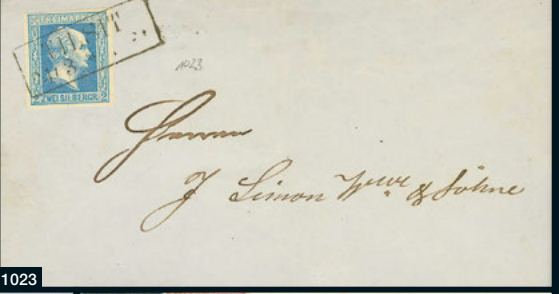 FREIMARKE
TILSIT
ZWEI SILBERGR.
1023
Herren
J Simon Wwe & Söhne
1023